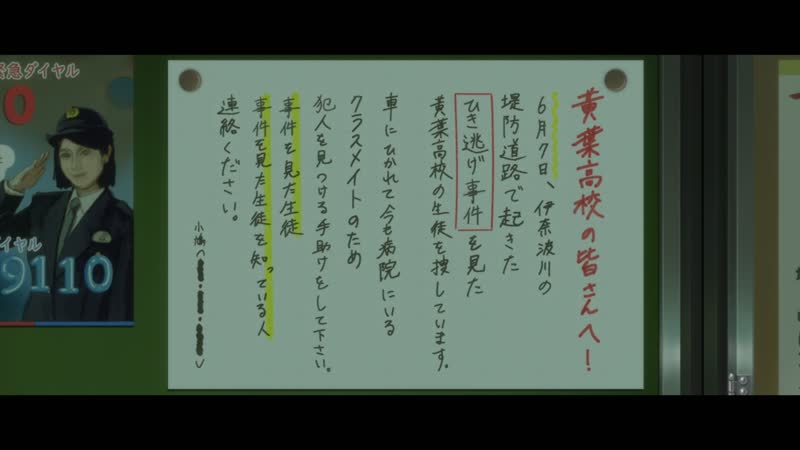 黄葉高校の皆さんへ！
6月7日、伊奈波川の
堤防道路で起きた
ひき逃げ事件を見た
黄葉高校の生徒を捜しています。
車にひかれて今も病院にいる
クラスメイトのため
犯人を見つける手助けをして下さい。
事件を見た生徒
事件を見た生徒を知っている人
連絡ください。
急ダイヤル
0
イヤル
9110